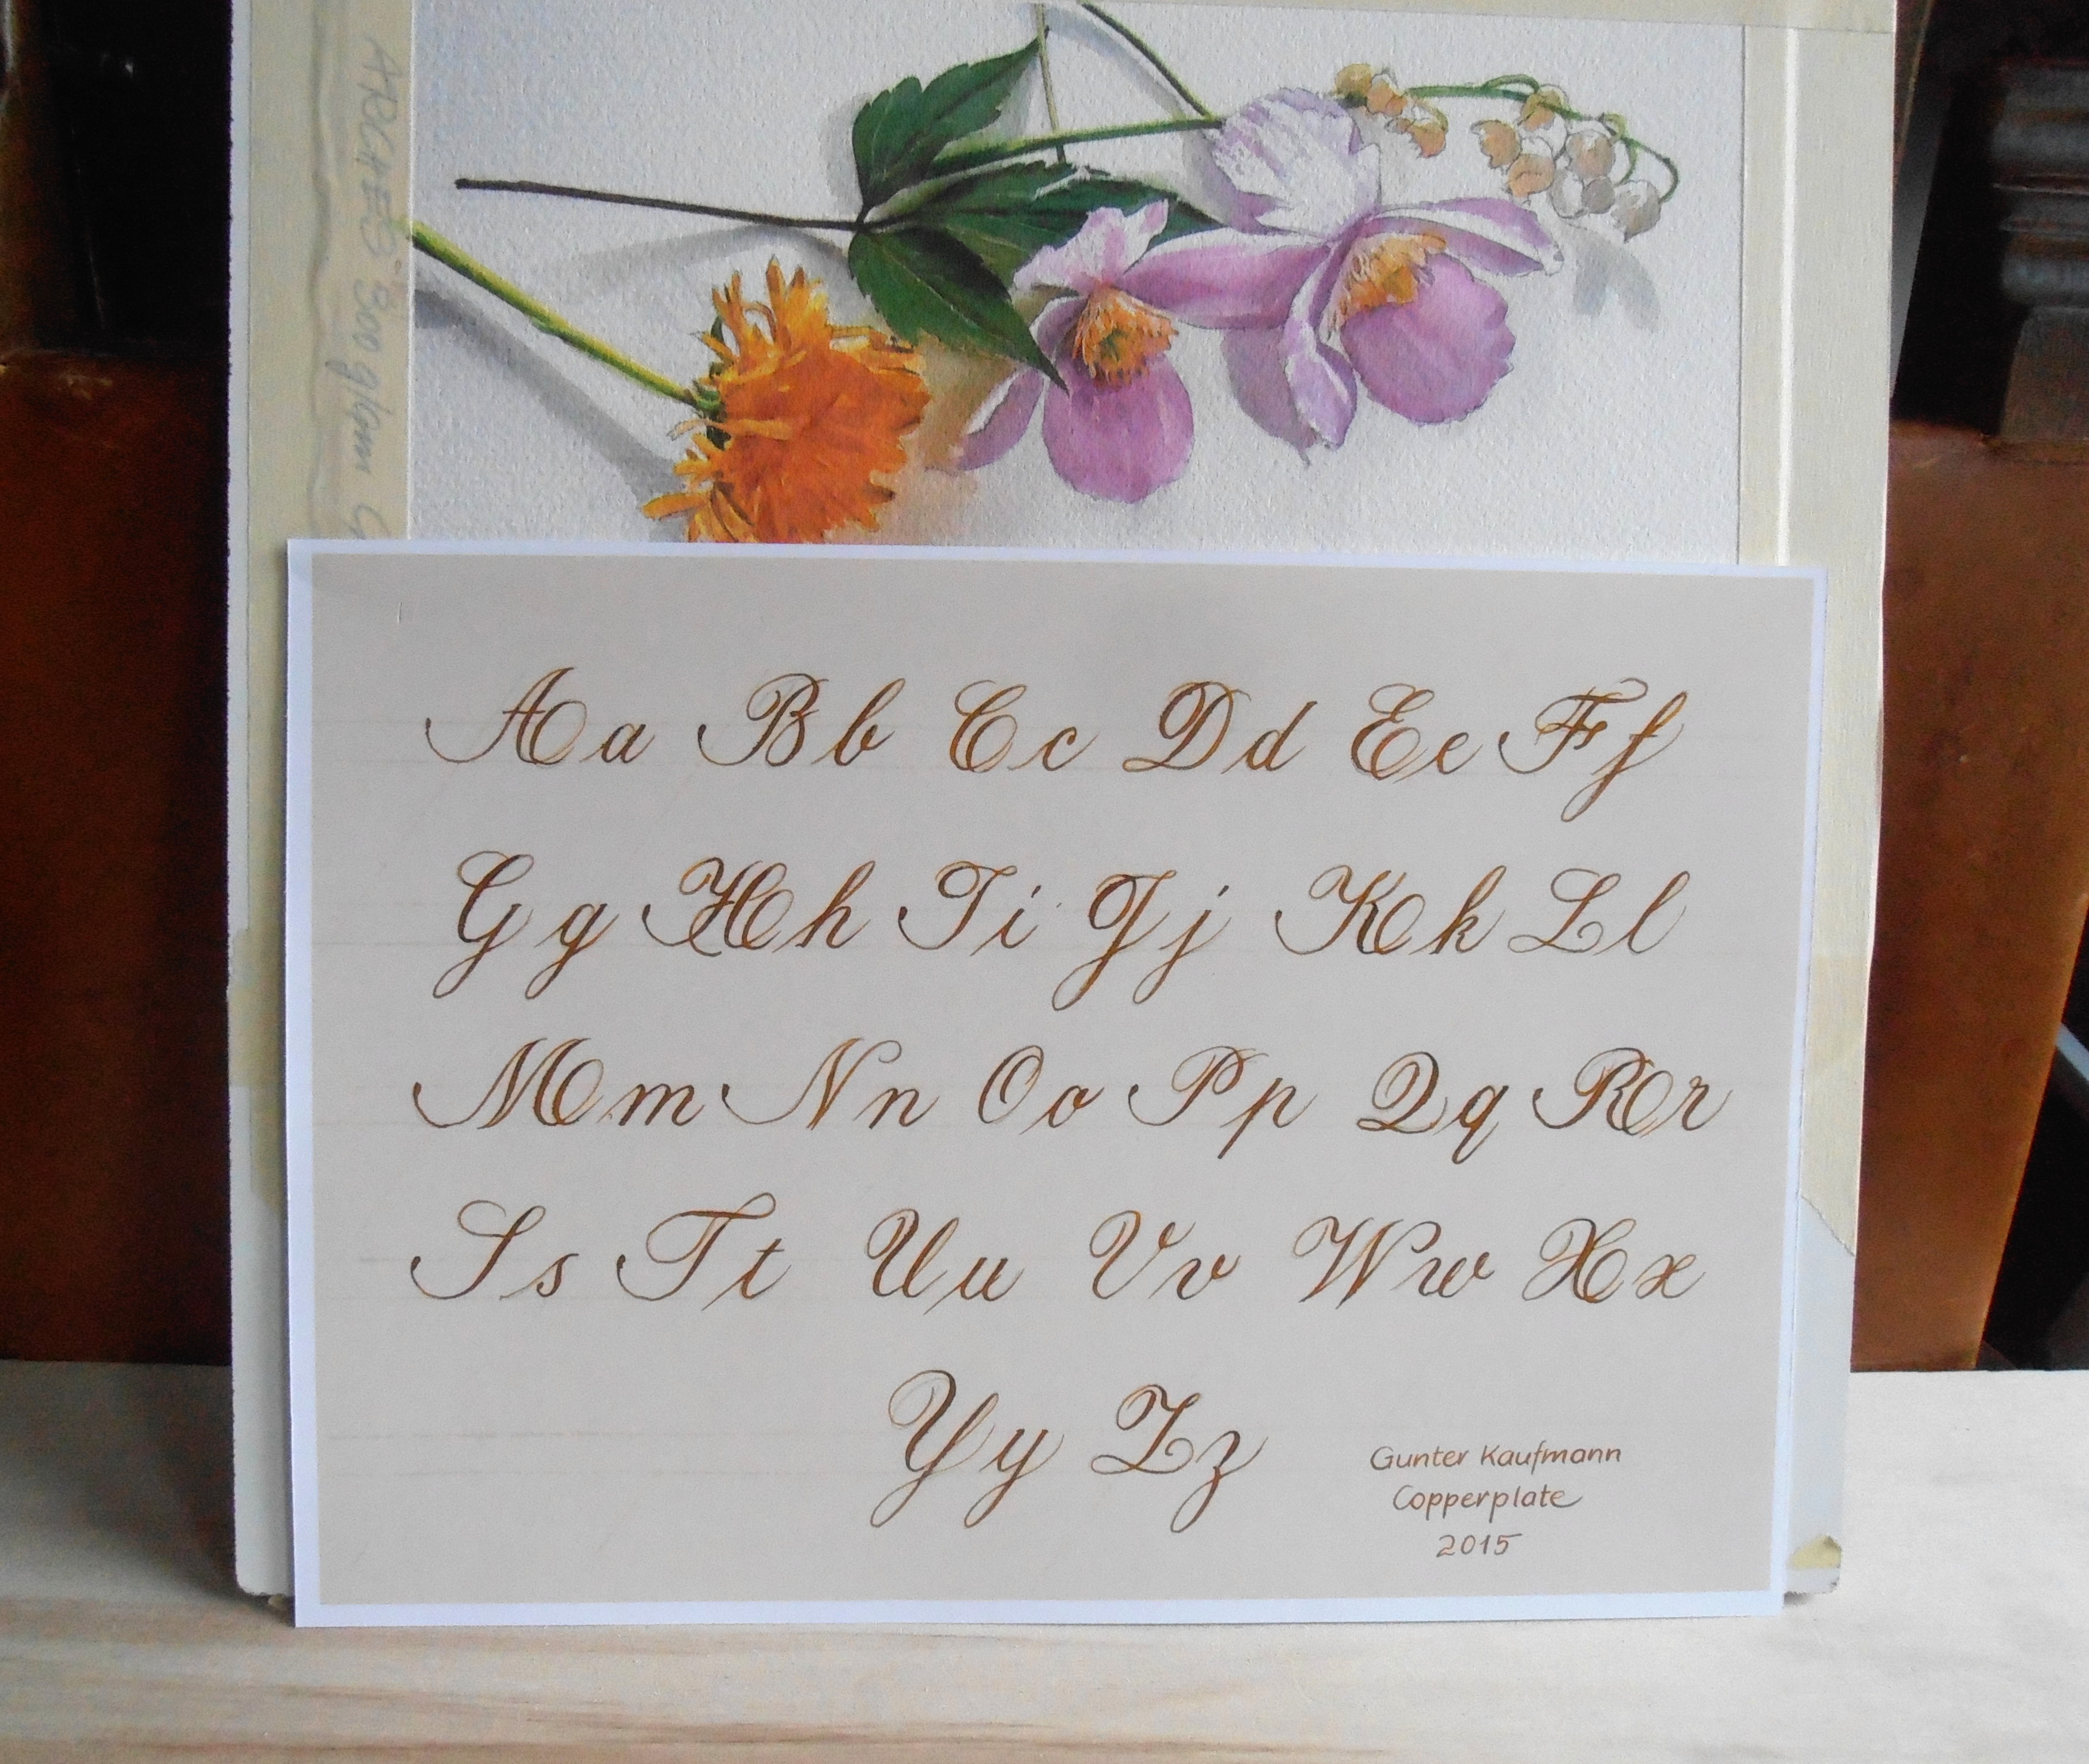 ARCHES 300 g/qm
Aa Bb Cc Dd Ee Ff
Gg Hh Ii Jj Kk Ll
Mm Nn Oo Pp Qq Rr
Ss Tt Uu Vv Ww Xx
Yy Zz
Gunter Kaufmann
Copperplate
2015